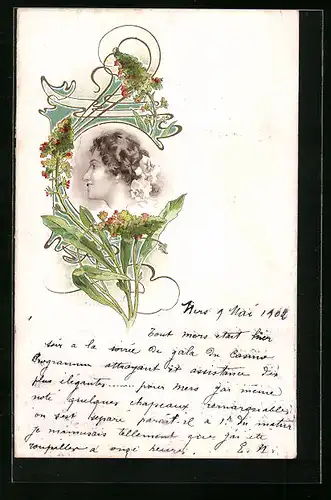 Mers 9 Mai 1902
Tout mers était hier
soir a la soirée de gala du Casino
Programm attrayant et assistance des
plus élégantes...... pour Mers j'ai même
noté quelques chapeaux remarquables
on s'est séparé parait il a 1h du matin
je m'ennuyais tellement que j'ai été
roupiller a onze heures. E. N.